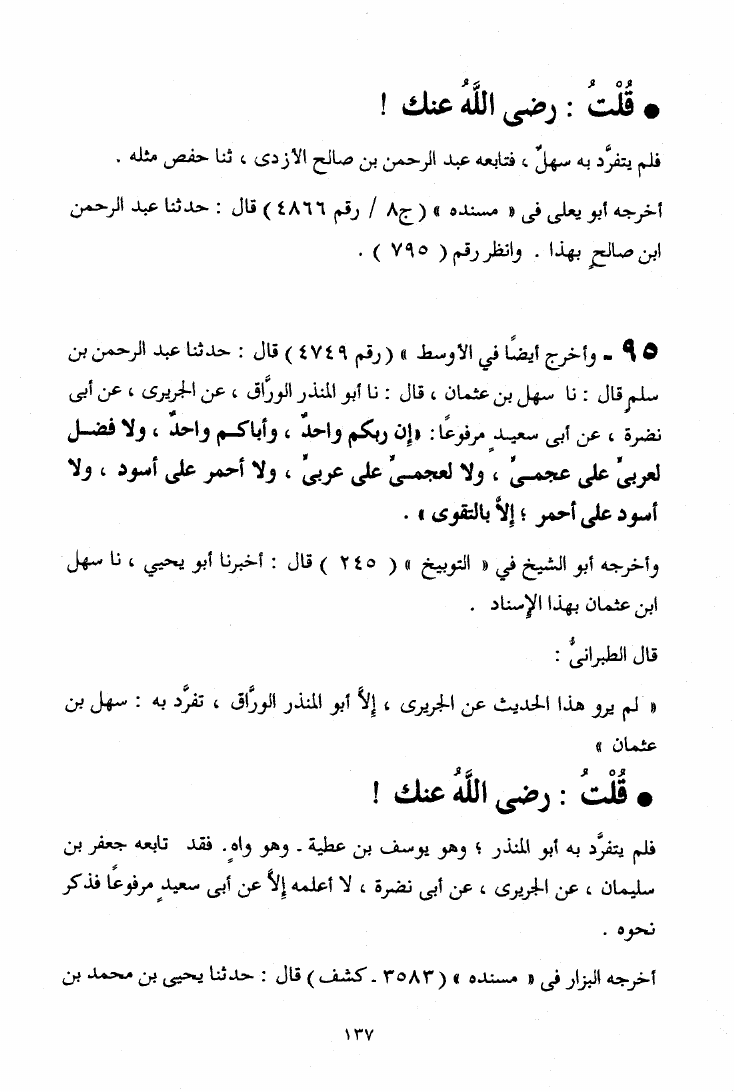 ● قُلْتُ : رضى اللَّهُ عنك !
فلم يتفرَّد به سهلٌ ، فتابعه عبد الرحمن بن صالح الأزدى ، ثنا حفص مثله .
أخرجه أبو يعلى فى « مسنده » ( ج٨ / رقم ٤٨٦٦ ) قال : حدثنا عبد الرحمن
ابن صالحٍ بهذا . وانظر رقم ( ٧٩٥ ) .
٩٥ - وأخرج أيضًا في الأوسط » ( رقم ٤٧٤٩ ) قال : حدثنا عبد الرحمن بن
سلمٍ قال : نا سهل بن عثمان ، قال : نا أبو المنذر الورَّاق ، عن الجريرى ، عن أبى
نضرة ، عن أبى سعيدٍ مرفوعًا : «إن ربكم واحدٌ ، وأباكم واحدٌ ، ولا فضل
لعربىٍّ على عجمىٍّ ، ولا لعجمىٍّ على عربىٍّ ، ولا أحمر على أسود ، ولا
أسود على أحمر ؛ إلاَّ بالتقوى » .
وأخرجه أبو الشيخ في « التوبيخ » ( ٢٤٥ ) قال : أخبرنا أبو يحيي ، نا سهل
ابن عثمان بهذا الإسناد .
قال الطبرانىُّ :
« لم يرو هذا الحديث عن الجريرى ، إلاَّ أبو المنذر الورَّاق ، تفرَّد به : سهل بن
عثمان »
● قُلْتُ : رضى اللَّهُ عنك !
فلم يتفرَّد به أبو المنذر ؛ وهو يوسف بن عطية - وهو واهٍ. فقد تابعه جعفر بن
سليمان ، عن الجريرى ، عن أبى نضرة ، لا أعلمه إلاَّ عن أبى سعيدٍ مرفوعًا فذكر
نحوه .
أخرجه البزار فى « مسنده » ( ٣٥٨٣ - كشف ) قال : حدثنا يحيى بن محمد بن
١٣٧